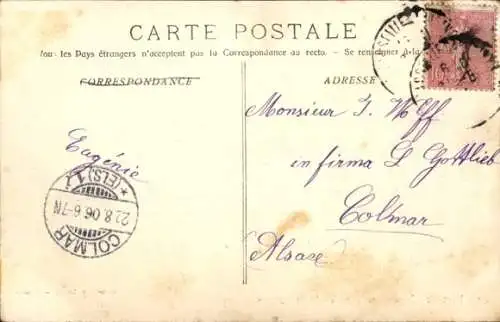 CARTE POSTALE
Tous les Pays étrangers n'acceptent pas la Correspondance au recto. Se renseigner à la
CORRESPONDANCE
ADRESSE
Monsieur J. Wolff
in firma L Gottlieb
Colmar
Alsace
Eugénie
*(ELS) 1 f
22.8.06.6-7N
COLMAR